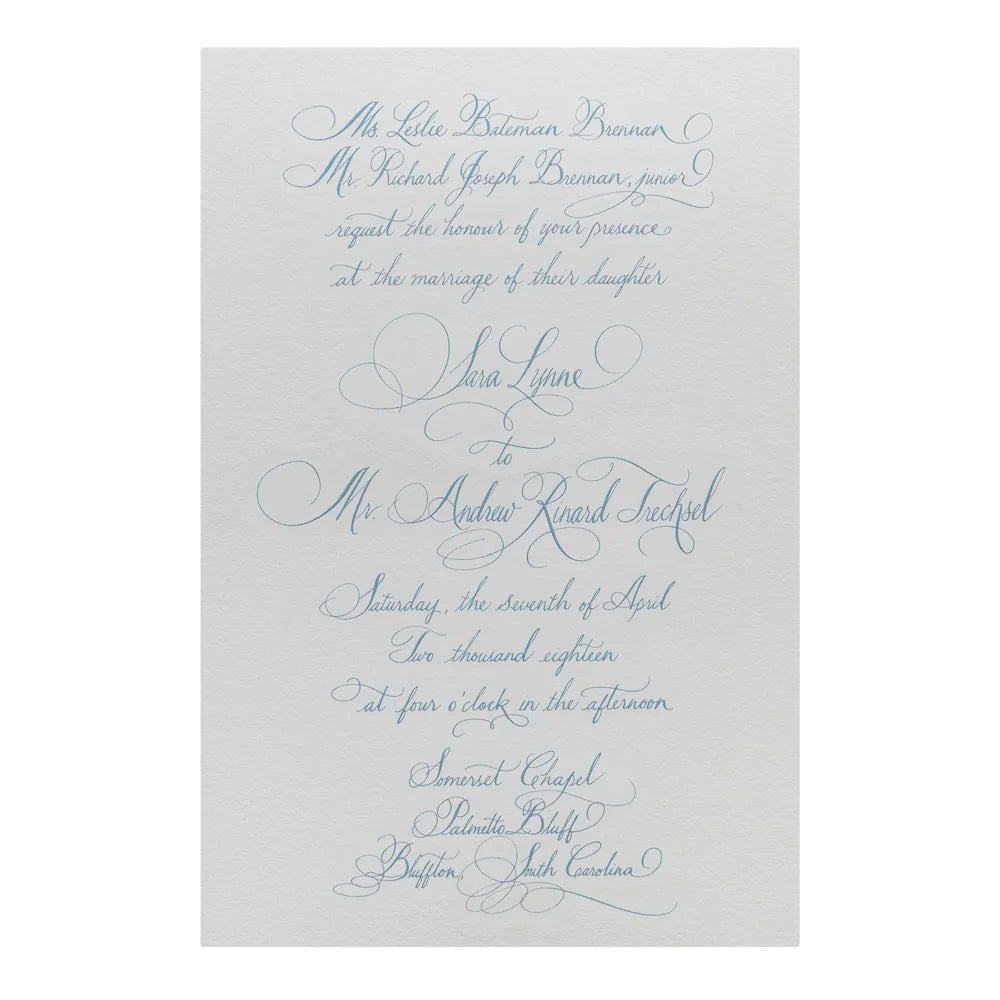 Ms. Leslie Bateman Brennan
Mr. Richard Joseph Brennan, junior
request the honour of your presence
at the marriage of their daughter
Sara Lynne
to
Mr. Andrew Rinard Trechsel
Saturday, the seventh of April
Two thousand eighteen
at four o'clock in the afternoon
Somerset Chapel
Palmetto Bluff
Bluffton, South Carolina